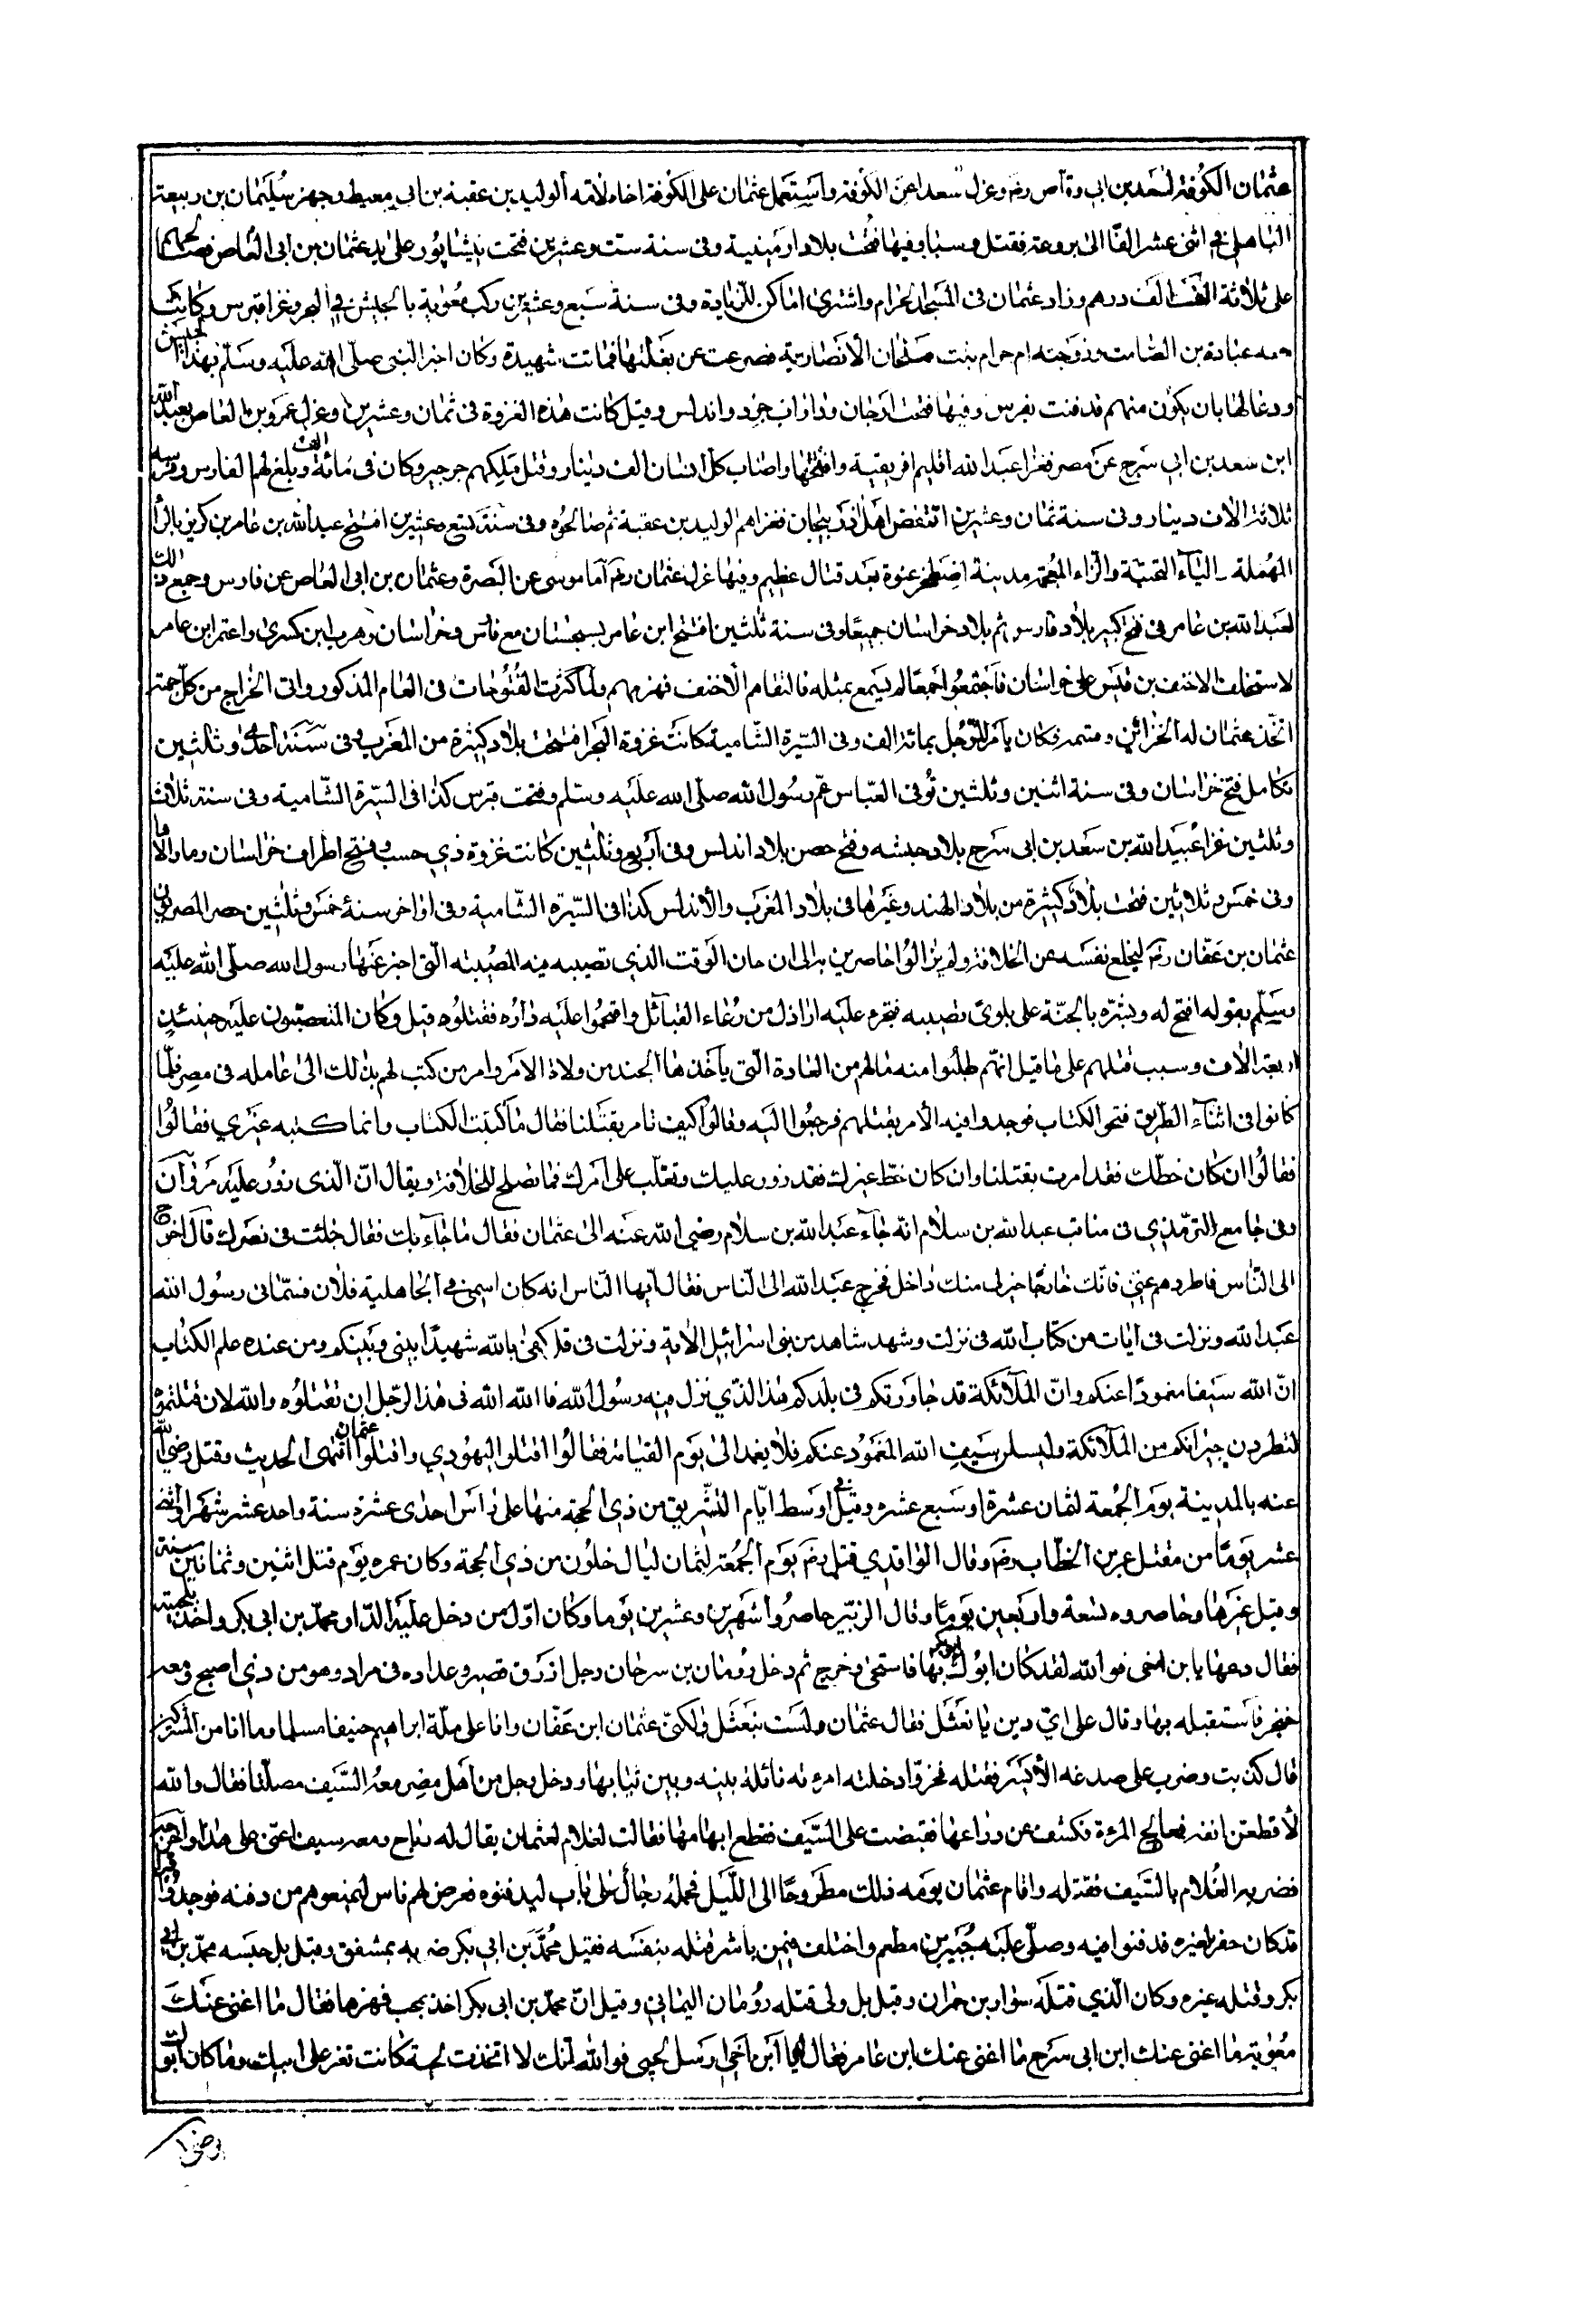 عثمان الكوفة لسعد بن ابى وقاص رضه وعزل سعدا عن الكوفة واستعمل عثمان على الكوفة اخاه لامه الوليد بن عقبة بن ابى معيط وجهز سليمان بن ربيعة
الباهلى فى اثنى عشر الفا الى بروعة فقتل وسبا وفيها فتحت بلاد ارمينية وفى سنة ست وعشرين فتحت نيشاپور على يد عثمان بن ابى العاص فصالحهم
على ثلاثة الف الف درهم وزاد عثمان فى المسجد الحرام واشترى اماكن للزيادة وفى سنة سبع وعشرين ركب معوية بالجيش فى البحر وغزا قبرس وكانت
معه عبادة بن الصامت وزوجته ام حرام بنت ملحان الانصارية فصرعت عن بغلتها فماتت شهيدة وكان اخبر النبى صلى الله عليه وسلم بهذا الجيش
ودعا لها بان يكون منهم فدفنت بقبرس وفيها فتحت ارجان ودارابجرد واندلس وقيل كانت هذه الغزوة فى ثمان وعشرين وعزل عمرو بن العاص بعبد الله
ابن سعد بن ابى سرح عن مصر فغزا عبد الله اقليم افريقية وافتتحها واصاب كل انسان الف دينار وقتل ملكهم جرجير وكان فى مائة الف وبلغ لهم الفارس وفرسه
ثلاثة الاف دينار وفى سنة ثمان وعشرين انتقض اهل اذربيجان فغزاهم الوليد بن عقبة ثم صالحوه وفى سنة تسع وعشرين افتتح عبد الله بن عامر بن كريز بالراء
المهملة والياء التحتية والزاء المعجمة مدينة اصطخر عنوة بعد قتال عظيم وفيها عزل عثمان رضه ابا موسى عن البصرة وعثمان بن ابى العاص عن فارس وجمع ذلك
لعبد الله بن عامر فى فتح كبير بلاد فارس ثم بلاد خراسان جميعا وفى سنة ثلثين افتتح ابن عامر بسجستان مع فارس وخراسان وهرب ابن كسرى واعتمر ابن عامر
لاستخلف الاحنف بن قيس على خراسان فاجتمعوا جمعا لم يسمع بمثله فالتقاهم الاحنف فهزمهم ولما كثرت الفتوحات فى العام المذكور واتى الخراج من كل جهة
اتخذ عثمان له الخزائن وقسمه فكان يأمر للرجل بمائة الف وفى السيرة الشامية كانت غزوة البحر افتتحت بلاد كثيرة من المغرب وفى سنة احدى وثلثين
تكامل فتح خراسان وفى سنة اثنين وثلثين توفى العباس عم رسول الله صلى الله عليه وسلم وفتحت قبرس كذا فى السيرة الشامية وفى سنة ثلاث
وثلثين غزا عبيد الله بن سعد بن ابى سرح بلاد حبشه وفتح حصن بلاد اندلس وفى اربع وثلثين كانت غزوة ذى حسب وفتح اطراف خراسان وما والاها
وفى خمس وثلاثين فتحت بلاد كثيرة من بلاد الهند وغيرها فى بلاد المغرب والاندلس كذا فى السيرة الشامية وفى اواخر سنة خمس وثلثين حصر المصريون
عثمان بن عفان رضه ليخلع نفسه عن الخلافة ولم يزالوا حاصرين به الى ان حان الوقت الذى تصيبه فيه المصيبته التى اخبر عنها رسول الله صلى الله عليه
وسلم بقوله افتح له وبشره بالجنة على بلوى تصيبه فتجرء عليه اراذل من رعاء القبائل واقتحموا عليه داره فقتلوه قيل وكان المتعصبون عليه حينئذ
اربعة الاف وسبب قتلهم على ما قيل انهم طلبوا منه مالهم من العادة التى يأخذها الجند من ولاة الامر وامر من كتب لهم بذلك الى عامله فى مصر فلما
كانوا فى اثناء الطريق فتحو الكتاب فوجدوا فيه الامر بقتلهم فرجعوا اليه وقالوا كيف تامر بقتلنا فقال ما كتبت الكتاب وانما كتبه غيرى فقالوا
فقالوا ان كان خطك فقد امرت بقتلنا وان كان خط غيرك فقد زور عليك وتغلب على امرك فما تصلح للخلافة ويقال ان الذى زور عليه مروان
وفى جامع الترمذى فى مناقب عبد الله بن سلام انه جاء عبد الله بن سلام رضى الله عنه الى عثمان فقال ما جاء بك فقال جئت فى نصرك قال اخرج
الى الناس فاطردهم عنى فانك خارجا خير لى منك داخل فخرج عبد الله الى الناس فقال ايها الناس انه كان اسمى فى الجاهلية فلان فسمانى رسول الله
عبد الله ونزلت فى ايات من كتاب الله فى نزلت وشهد شاهد من بنى اسرائيل الاية ونزلت فى قل كفى بالله شهيدا بينى وبينكم ومن عنده علم الكتاب
ان الله سيفا مغمودا عنكم وان الملائكة قد جاورتكم فى بلدكم هذا الذى نزل فيه رسول الله فا الله الله فى هذا الرجل ان تقتلوه والله لان قتلتموه
لتطردن جيرانكم من الملائكة وليسلن سيف الله المغمود عنكم فلا يغمد الى يوم القيامة فقالوا اقتلو اليهودى واقتلوا عثمان انتهى الحديث وقتل رضى الله
عنه بالمدينة يوم الجمعة لثمان عشرة او سبع عشره وقيل فى اوسط ايام التشريق من ذى الحجة منها على راس احدى عشرة سنة واحد عشر شهرا واثنى
عشر يوما من مقتل عمر بن الخطاب رضه وقال الواقدى قتل رضه يوم الجمعة لثمان ليال خلون من ذى الحجة وكان عمره يوم قتل اثنين وثمانين سنة
وقيل غيرها وحاصروه تسعة واربعين يوما وقال الزبير حاصروا شهرين وعشرين يوما وكان اول من دخل عليه الدار محمد بن ابى بكر واخذ بلحيته
فقال دعها يا ابن اخى فو الله لقد كان ابوك يكرمها فاستحى وخرج ثم دخل رومان بن سرحان رجل ازرق قصير وعداده فى مراد وهو من ذى اصبح معه
خنجر فاستقبله بها وقال على اى دين يا نعثل فقال عثمان ولست بنعثل ولكنى عثمان ابن عفان وانا على ملة ابراهيم حنيفا مسلما وما انا من المشركين
قال كذبت وضرب على صدغه الايسر فقتله فخر وادخلته امرءته نائلة بينه وبين ثيابها ودخل رجل من اهل مصر معه السيف مصلتا فقال والله
لاقطعن انفه فعالج المرءة فكشف عن ذراعها فقبضت على السيف فقطع ابهامها فقالت لغلام لعثمان يقال له رباح ومعه سيف اعنى على هذا واخرجه
فضربه الغلام بالسيف فقتله واقام عثمان يومه ذلك مطروحا الى الليل فحمله رجال على باب ليدفنوه فعرض لهم ناس ليمنعوهم من دفنه فوجدوا قبرا
قد كان حفر لغيره فدفنوا فيه وصلى عليه جبير بن مطعم واختلف فيمن باشر قتله بنفسه فقيل محمد بن ابى بكر ضربه بمشقص وقيل بل حبسه محمد بن ابى
بكر وقتله غيره وكان الذى قتله سوار بن حمران وقيل بل ولى قتله رومان اليمانى وقيل ان محمد بن ابى بكر اخذ بحيه فهزها فقال ما اغنى عنك
معوية ما اغنى عنك ابن ابى سرح ما اغنى عنك ابن عامر فقال يا ابن اخى ارسل لحيى فو الله انك لا اتخذت لحية كانت تعز على ابيك وما كان ابوك